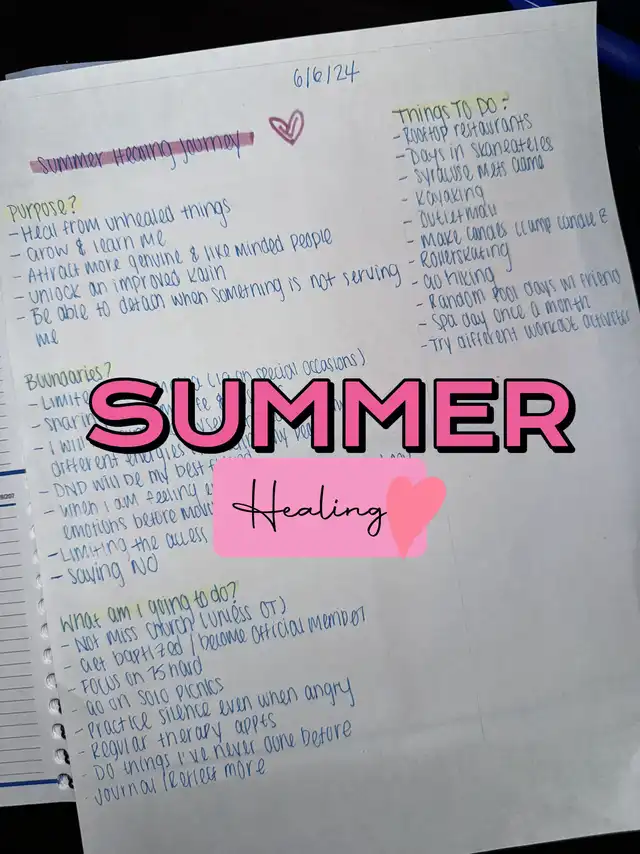 6/6/24
Summer Healing Journey
Purpose?
- Heal from unhealed things
- Grow & learn me
- Attract more genuine & like minded people
- Unlock an improved
- Be able to detach when something is not serving
me
Things TO DO:
- Rooftop restaurants
- Days in Skaneateles
- Syracuse Mets Game
- Kayaking
- Outlet mall
- Make candles
- Rollerskating
- Go hiking
- Random Pool days w/ friend
- Spa day once a month
- Try different workout activities
Boundaries?
- Limit on special occasions)
- Sharin
- I will
different energies
- DND will be my best
- When I am feeling
emotions before mov
- Limiting the access
- Saying NO
SUMMER
Healing
What am I going to do?
- Not miss church (unless OT)
- Get baptized / become official member
- Focus on 75 hard
- Go on solo picnics
- Practice silence even when angry
- Regular therapy appts
- Do things I've never done before
- Journal / Reflect more